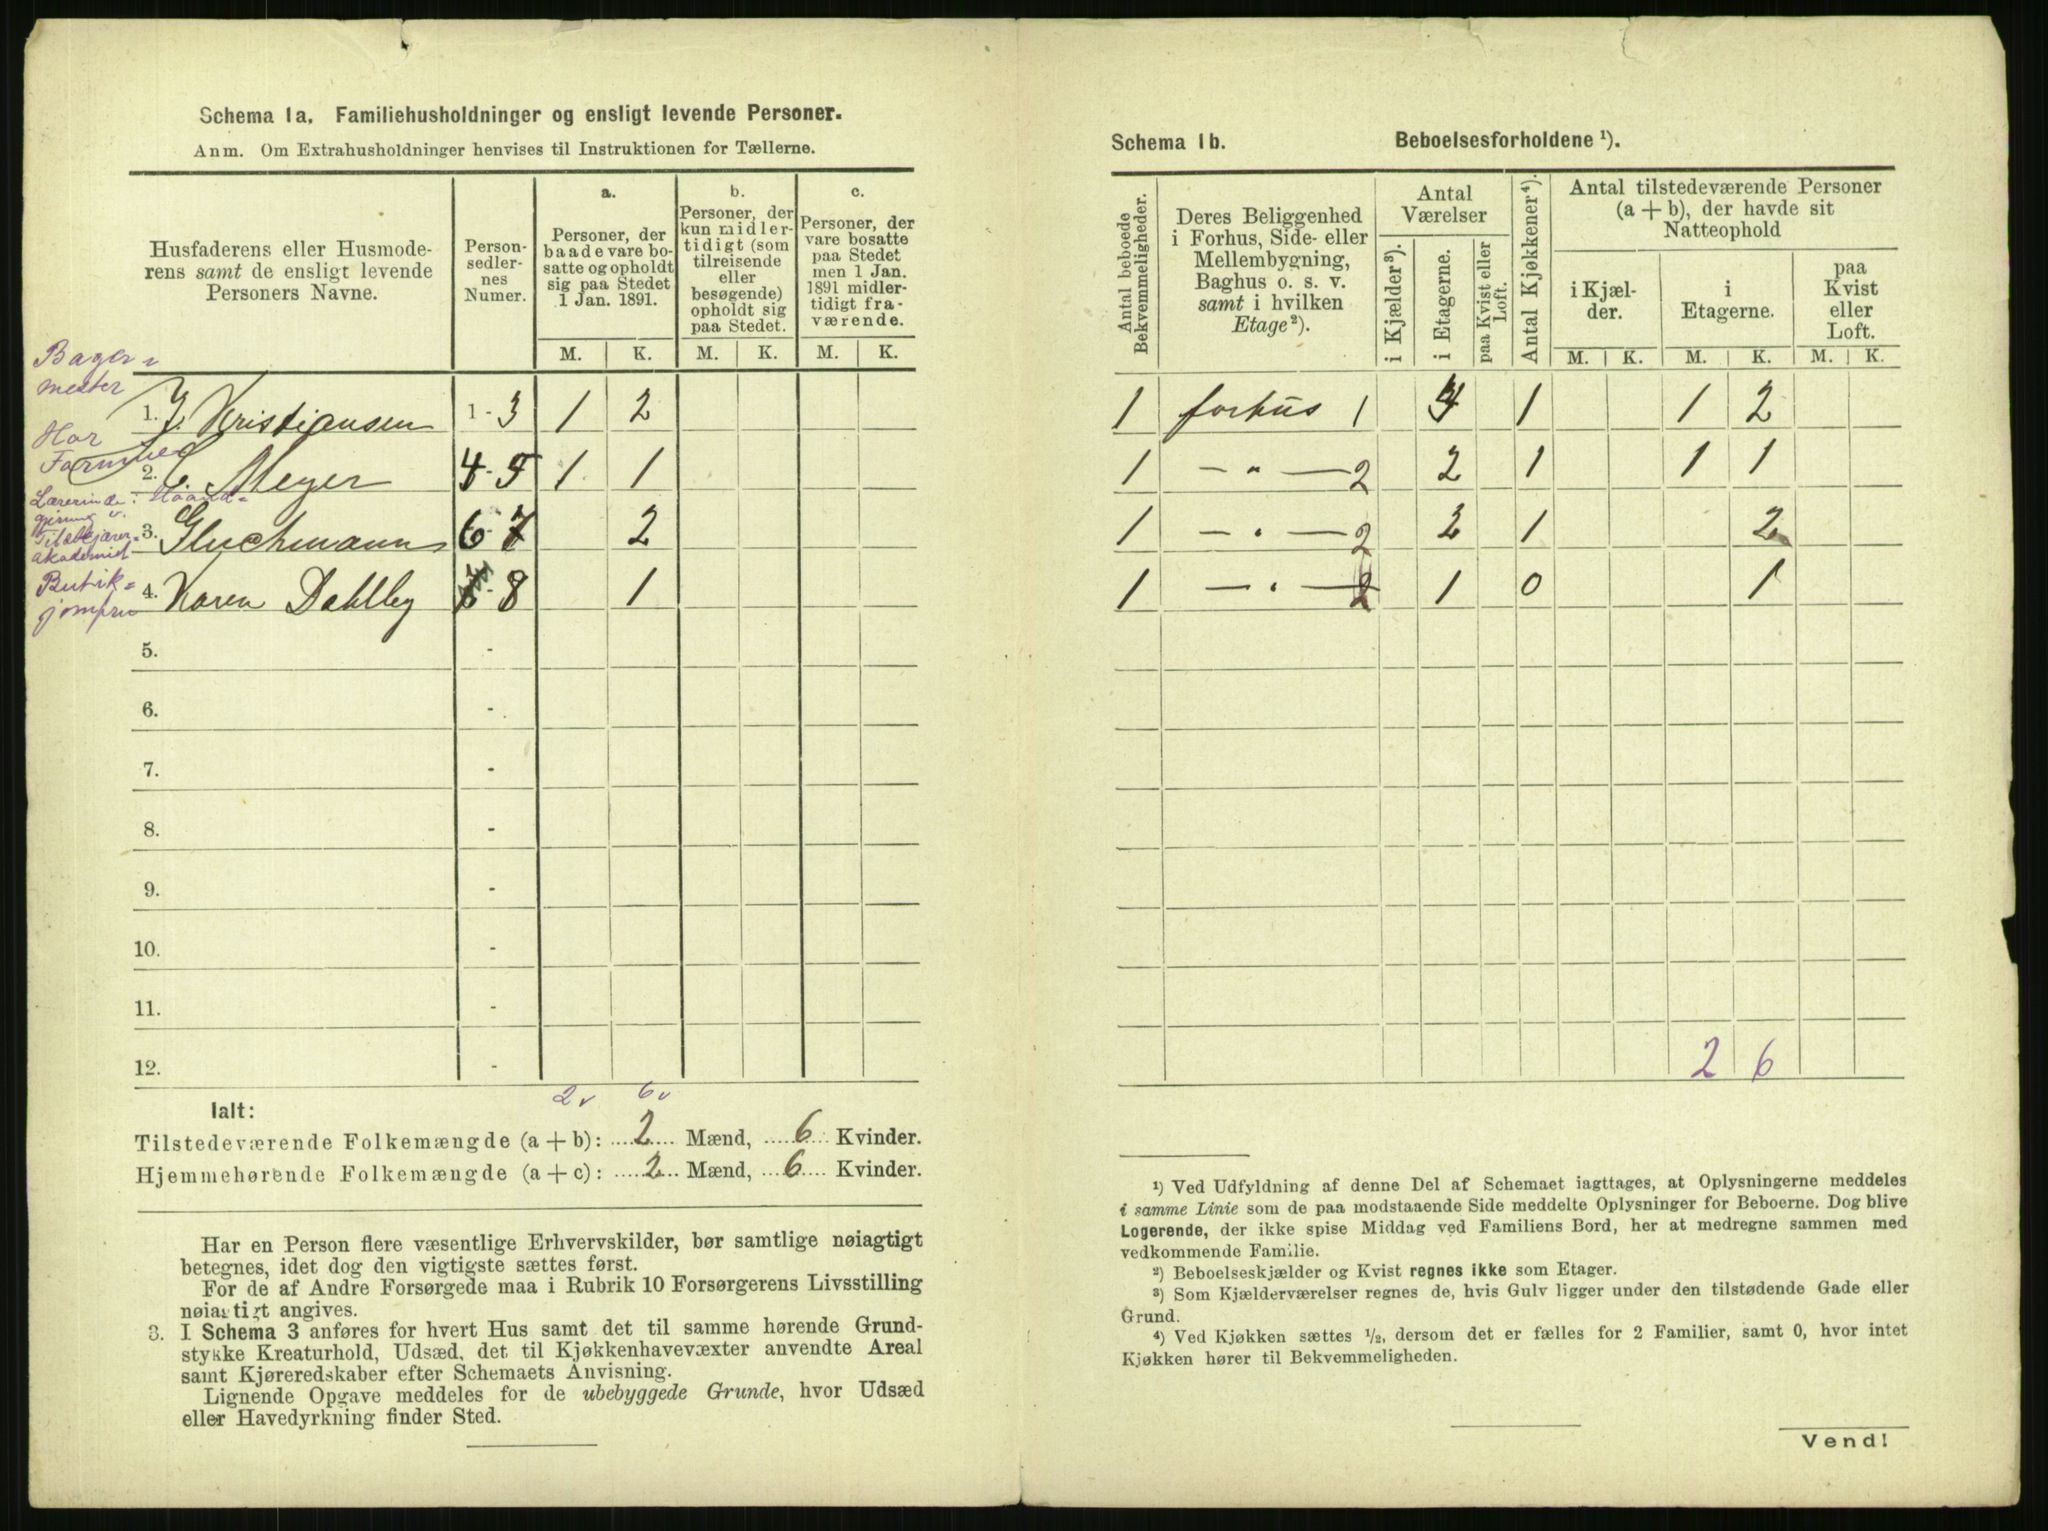 Schema 1a. Familiehusholdninger og ensligt levende Personer.
Anm. Om Extrahusholdninger henvises til Instruktionen for Tællerne.
Husfaderens eller Husmode-
rens samt de ensligt levende
Personers Navne.
Person-
sedler-
nes
Numer.
a.
Personer, der
baade vare bo-
satte og opholdt
sig paa Stedet
1 Jan. 1891.
M. K.
b.
Personer, der
kun midler-
tidigt (som
tilreisende
eller
besøgende)
opholdt sig
paa Stedet.
M. K.
c.
Personer, der
vare bosatte
paa Stedet
men 1 Jan.
1891 midler-
tidigt fra-
værende.
M. K.
Bager-
mester
1. J. Kristiansen 1-3 1 2
Har
Formue
2. C. Meyer 4-5 1 1
Lærerinde i Haand-
gjerning v.
Tilskjærer-
akademiet
3. Gluckmann 6-7 2
Butik-
jomfru
4. Karen Dahlby 8 1
5. -
6. -
7. -
8. -
9. -
10. -
11. -
12. -
2v 6v
Ialt:
Tilstedeværende Folkemængde (a + b): 2 Mænd, 6 Kvinder.
Hjemmehørende Folkemængde (a + c): 2 Mænd, 6 Kvinder.
Har en Person flere væsentlige Erhvervskilder, bør samtlige nøiagtigt
betegnes, idet dog den vigtigste sættes først.
For de af Andre Forsørgede maa i Rubrik 10 Forsørgerens Livsstilling
nøiagtigt angives.
3. I Schema 3 anføres for hvert Hus samt det til samme hørende Grund-
stykke Kreaturhold, Udsæd, det til Kjøkkenhavevæxter anvendte Areal
samt Kjøreredskaber efter Schemaets Anvisning.
Lignende Opgave meddeles for de ubebyggede Grunde, hvor Udsæd
eller Havedyrkning finder Sted.
Schema 1b. Beboelsesforholdene ¹).
Antal beboede
Bekvemmeligheder.
Deres Beliggenhed
i Forhus, Side- eller
Mellembygning,
Baghus o. s. v.
samt i hvilken
Etage ²).
Antal
Værelser
i Kjælder ³).
i Etagerne.
paa Kvist eller
Loft.
Antal Kjøkkener ⁴).
Antal tilstedeværende Personer
(a + b), der havde sit
Natteophold
i Kjæl-
der.
i
Etagerne.
paa
Kvist
eller
Loft.
M. K. M. K. M. K.
1 forhus 1 1 1 2
1 — " — 2 2 1 1 1
1 — " — 2 2 1 2
1 — " — 2 1 0 1
2 6
¹) Ved Udfyldning af denne Del af Schemaet iagttages, at Oplysningerne meddeles
i samme Linie som de paa modstaaende Side meddelte Oplysninger for Beboerne. Dog blive
Logerende, der ikke spise Middag ved Familiens Bord, her at medregne sammen med
vedkommende Familie.
²) Beboelseskjælder og Kvist regnes ikke som Etager.
³) Som Kjælderværelser regnes de, hvis Gulv ligger under den tilstødende Gade eller
Grund.
⁴) Ved Kjøkken sættes ½, dersom det er fælles for 2 Familier, samt 0, hvor intet
Kjøkken hører til Bekvemmeligheden.
Vend!